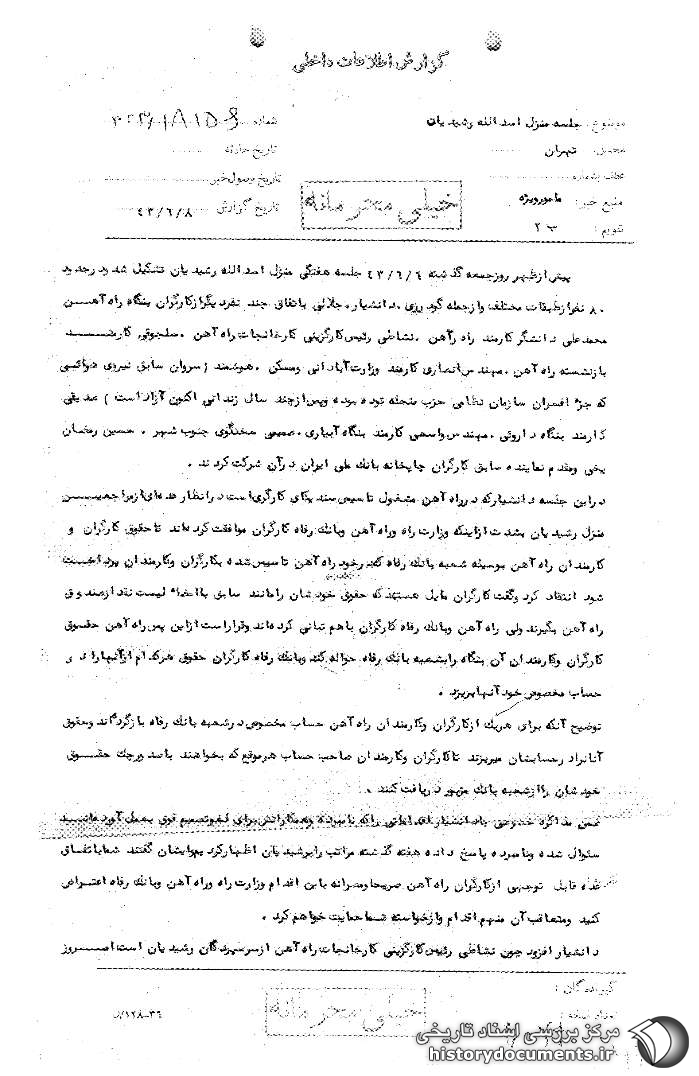 گزارش اطلاعات داخلی
موضوع: جلسه منزل اسد الله رشیدیان
شماره
محل: تهران
تاریخ حادثه
عطف بشماره
تاریخ وصول خبر
منبع خبر: مامور ویژه
خیلی محرمانه
تاریخ گزارش ۴۳/۶/۸
تقویم: ب ۲
پیش از ظهر روز جمعه گذشته ۴۳/۶/۶ جلسه هفتگی منزل اسد الله رشیدیان تشکیل شد و در حدود
۸۰ نفر از طبقات مختلف و از جمله گودرزی، دانشیار، جلالی باتفاق چند نفر دیگر از کارگران بنگاه راه آهن
محمدعلی دانشگر کارمند راه آهن، نشاطی رئیس کارگزینی کارخانجات راه آهن، سلجوقی کارمند
بازنشسته راه آهن، مهندس انصاری کارمند وزارت آبادانی ومسکن، هوشمند (سروان سابق نیروی هوائی
که جزء افسران سازمان نظامی حزب منحله توده بوده وپس از چند سال زندانی اکنون آزاد است) صدیقی
کارمند بنگاه داروئی، مهندس واسعی کارمند بنگاه آبیاری، صمیمی سخنگوی جنوب شهر، حسین رمضان
یخی ومقدم نماینده سابق کارگران چاپخانه بانک ملی ایران در آن شرکت کردند.
در این جلسه دانشیار که در راه آهن مشغول تاسیس سندیکای کارگری است در انظار عده‌ای از مراجعین
منزل رشیدیان بشدت از اینکه وزارت راه وراه آهن وبانک رفاه کارگران موافقت کرده‌اند تا حقوق کارگران و
کارمندان راه آهن بوسیله شعبه بانک رفاه که در خود راه آهن تاسیس شده بکارگران وکارمندان پرداخت
شود انتقاد کرد وگفت کارگران مایل هستند که حقوق خودشان را مانند سابق با امضاء لیست نقد از صندوق
راه آهن بگیرند ولی راه آهن وبانک رفاه کارگران باهم تبانی کرده‌اند وقرار است از این پس راه آهن حقوق
کارگران وکارمندان آن بنگاه را بشعبه بانک رفاه حواله کند وبانک رفاه کارگران حقوق هرکدام از آنها را در
حساب مخصوص خود آنها بریزد.
توضیح آنکه برای هریک از کارگران وکارمندان راه آهن حساب مخصوص در شعبه بانک رفاه باز کرده‌اند وحقوق
آنانرا در حسابشان میریزند تا کارگران وکارمندان صاحب حساب هرموقع که بخواهند با صدور چک حقوق
خودشان را از شعبه بانک مزبور دریافت کنند.
ضمن مذاکره خصوصی با دانشیار اقداماتی را که نامبرده وهمکارانش برای لغو تصمیم فوق بعمل آورده‌اند
سئوال شده ونامبرده پاسخ داده هفته گذشته مراتب را برشیدیان اظهار کردیم وایشان گفتند شما باتفاق
عده قابل توجهی از کارگران راه آهن صریحا ومصرانه باین اقدام وزارت راه وراه آهن وبانک رفاه اعتراض
کنید ومتعاقب آن منهم اقدام واز خواسته شما حمایت خواهم کرد.
دانشیار افزود چون نشاطی رئیس کارگزینی کارخانجات راه آهن از سرسپردگان رشیدیان است امروز
گیرندگان:
خیلی محرمانه
مرکز بررسی اسناد تاریخی
historydocuments.ir